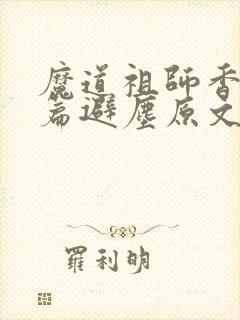 魔道祖師香
篇避塵原文
羅利明